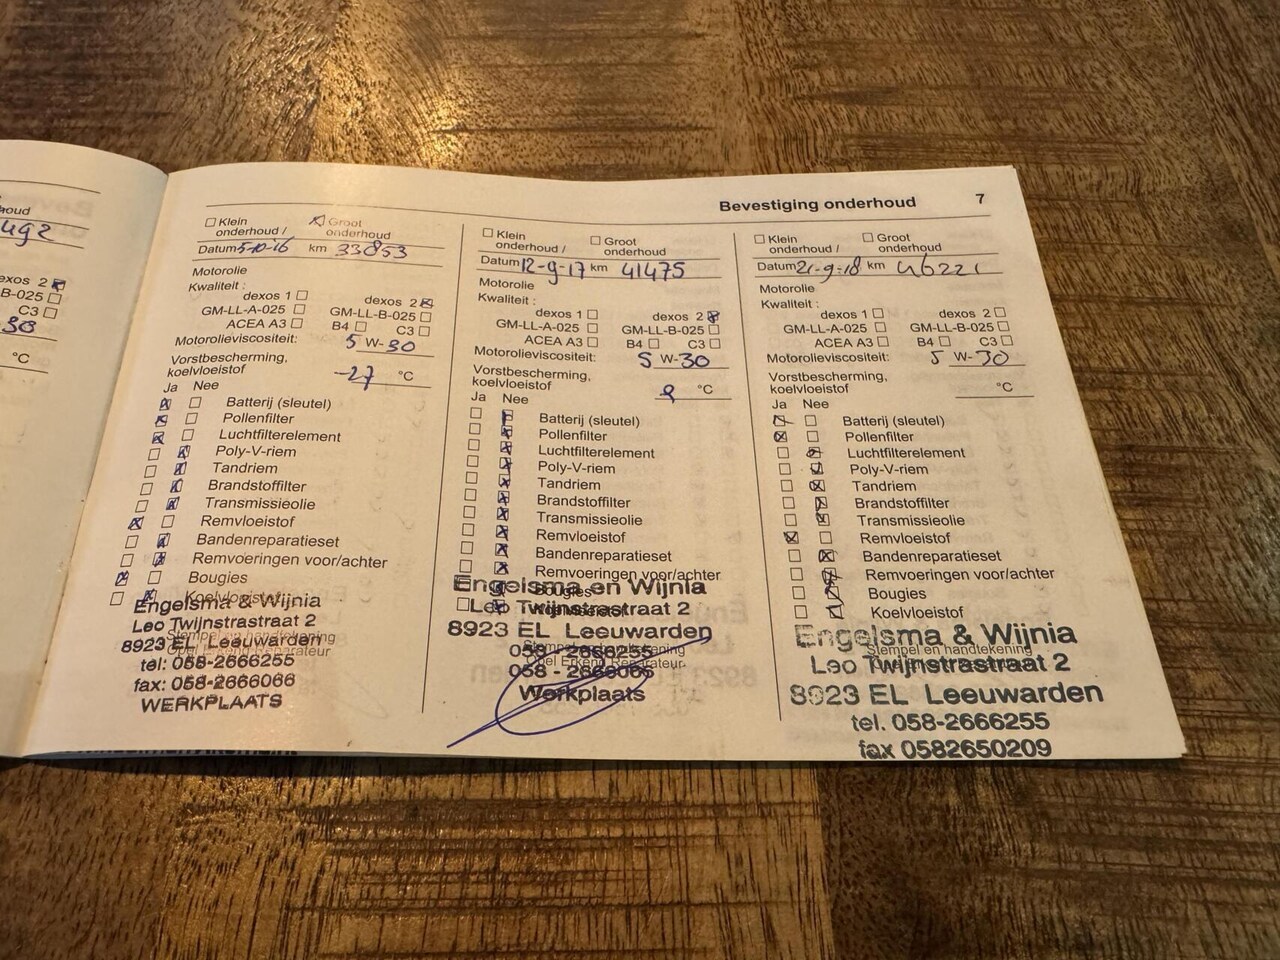 Bevestiging onderhoud 7
houd
492
exos 2
B-025
C3
30
°C
Klein onderhoud / Groot onderhoud
Datum 5-10-16 km 33853
Motorolie
Kwaliteit :
dexos 1 dexos 2
GM-LL-A-025 GM-LL-B-025
ACEA A3 B4 C3
Motorolieviscositeit: 5 W-30
Vorstbescherming,
koelvloeistof -27 °C
Ja Nee
Batterij (sleutel)
Pollenfilter
Luchtfilterelement
Poly-V-riem
Tandriem
Brandstoffilter
Transmissieolie
Remvloeistof
Bandenreparatieset
Remvoeringen voor/achter
Bougies
Koelvloeistof
Stempel en handtekening
Opel Erkend Reparateur
Engelsma & Wijnia
Leo Twijnstrastraat 2
8923 EL Leeuwarden
tel: 058-2666255
fax: 058-2666066
WERKPLAATS
Klein onderhoud / Groot onderhoud
Datum 12-9-17 km 41475
Motorolie
Kwaliteit :
dexos 1 dexos 2
GM-LL-A-025 GM-LL-B-025
ACEA A3 B4 C3
Motorolieviscositeit: 5 W-30
Vorstbescherming,
koelvloeistof °C
Ja Nee
Batterij (sleutel)
Pollenfilter
Luchtfilterelement
Poly-V-riem
Tandriem
Brandstoffilter
Transmissieolie
Remvloeistof
Bandenreparatieset
Remvoeringen voor/achter
Bougies
Koelvloeistof
Stempel en handtekening
Opel Erkend Reparateur
Engelsma en Wijnia
Leo Twijnstrastraat 2
8923 EL Leeuwarden
058 - 2666255
058 - 2666066
Werkplaats
Klein onderhoud / Groot onderhoud
Datum 21-9-18 km 46221
Motorolie
Kwaliteit :
dexos 1 dexos 2
GM-LL-A-025 GM-LL-B-025
ACEA A3 B4 C3
Motorolieviscositeit: 5 W-30
Vorstbescherming,
koelvloeistof °C
Ja Nee
Batterij (sleutel)
Pollenfilter
Luchtfilterelement
Poly-V-riem
Tandriem
Brandstoffilter
Transmissieolie
Remvloeistof
Bandenreparatieset
Remvoeringen voor/achter
Bougies
Koelvloeistof
Stempel en handtekening
Engelsma & Wijnia
Leo Twijnstrastraat 2
8923 EL Leeuwarden
tel. 058-2666255
fax 0582650209